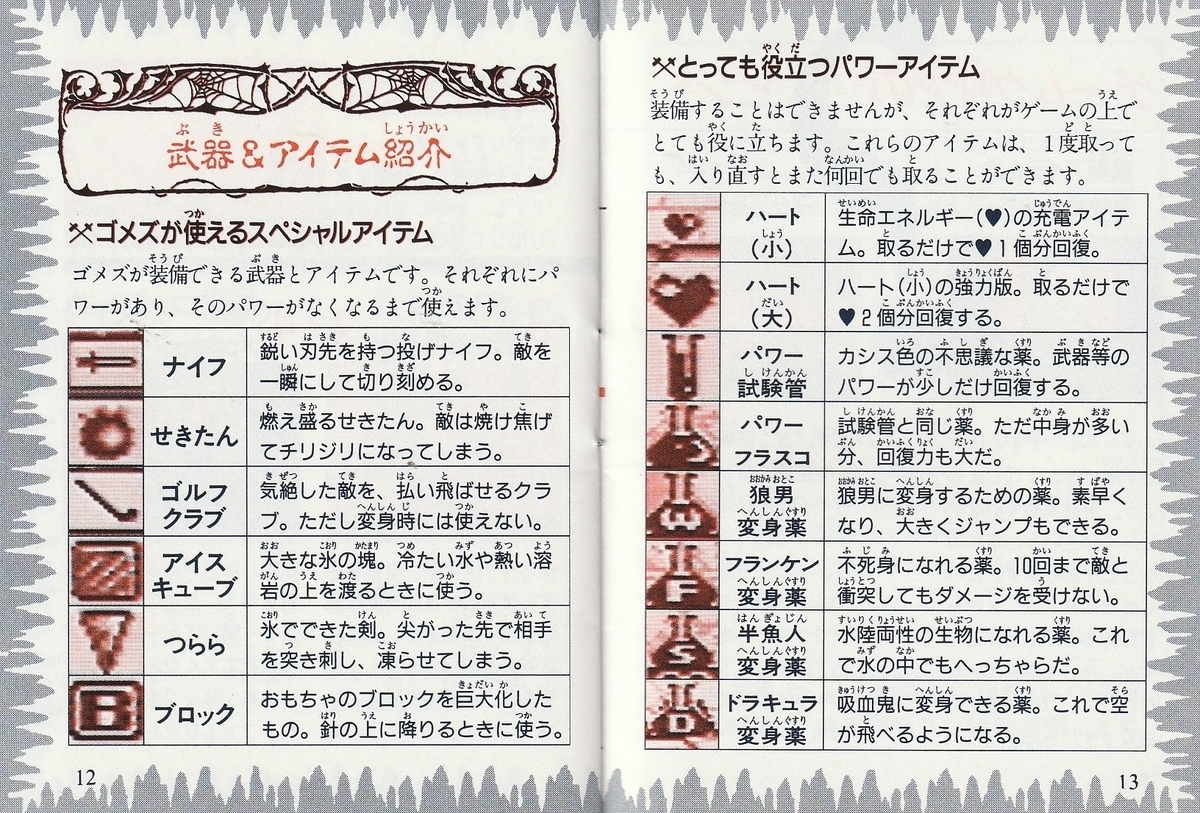 武器&アイテム紹介
ゴメズが使えるスペシャルアイテム
ゴメズが装備できる武器とアイテムです。それぞれにパ
ワーがあり、そのパワーがなくなるまで使えます。
ナイフ
鋭い刃先を持つ投げナイフ。敵を
一瞬にして切り刻める。
せきたん
燃え盛るせきたん。敵は焼け焦げ
てチリジリになってしまう。
ゴルフ
クラブ
気絶した敵を、払い飛ばせるクラ
ブ。ただし変身時には使えない。
アイス
キューブ
大きな氷の塊。冷たい水や熱い溶
岩の上を渡るときに使う。
つらら
氷でできた剣。尖がった先で相手
を突き刺し、凍らせてしまう。
B
ブロック
おもちゃのブロックを巨大化した
もの。針の上に降りるときに使う。
12
とっても役立つパワーアイテム
装備することはできませんが、それぞれがゲームの上で
とても役に立ちます。これらのアイテムは、1度取って
も、入り直すとまた何回でも取ることができます。
ハート
(小)
生命エネルギー(♥)の充電アイテ
ム。取るだけで♥1個分回復。
ハート
(大)
ハート(小)の強力版。取るだけで
♥2個分回復する。
パワー
試験管
カシス色の不思議な薬。武器等の
パワーが少しだけ回復する。
パワー
フラスコ
試験管と同じ薬。ただ中身が多い
分、回復力も大だ。
W
狼男
変身薬
狼男に変身するための薬。素早く
なり、大きくジャンプもできる。
F
フランケン
変身薬
不死身になれる薬。10回まで敵と
衝突してもダメージを受けない。
S
半魚人
変身薬
水陸両性の生物になれる薬。これ
で水の中でもへっちゃらだ。
D
ドラキュラ
変身薬
吸血鬼に変身できる薬。これで空
が飛べるようになる。
13